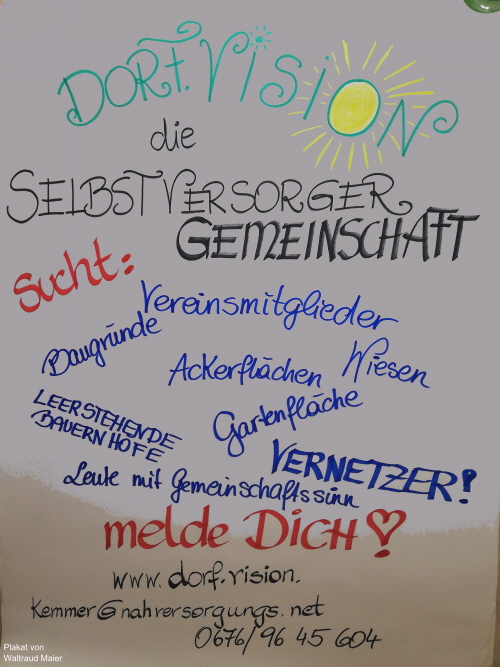 DORF.VISION
die
SELBSTVERSORGER
GEMEINSCHAFT
sucht:
Vereinsmitglieder
Baugründe
Ackerflächen Wiesen
LEERSTEHENDE
BAUERNHÖFE
Gartenfläche
VERNETZER!
Leute mit Gemeinschaftssinn
melde DICH!
www.dorf.vision.
Kemmer@nahversorgungs.net
0676/96 45 604
Plakat von
Waltraud Maier